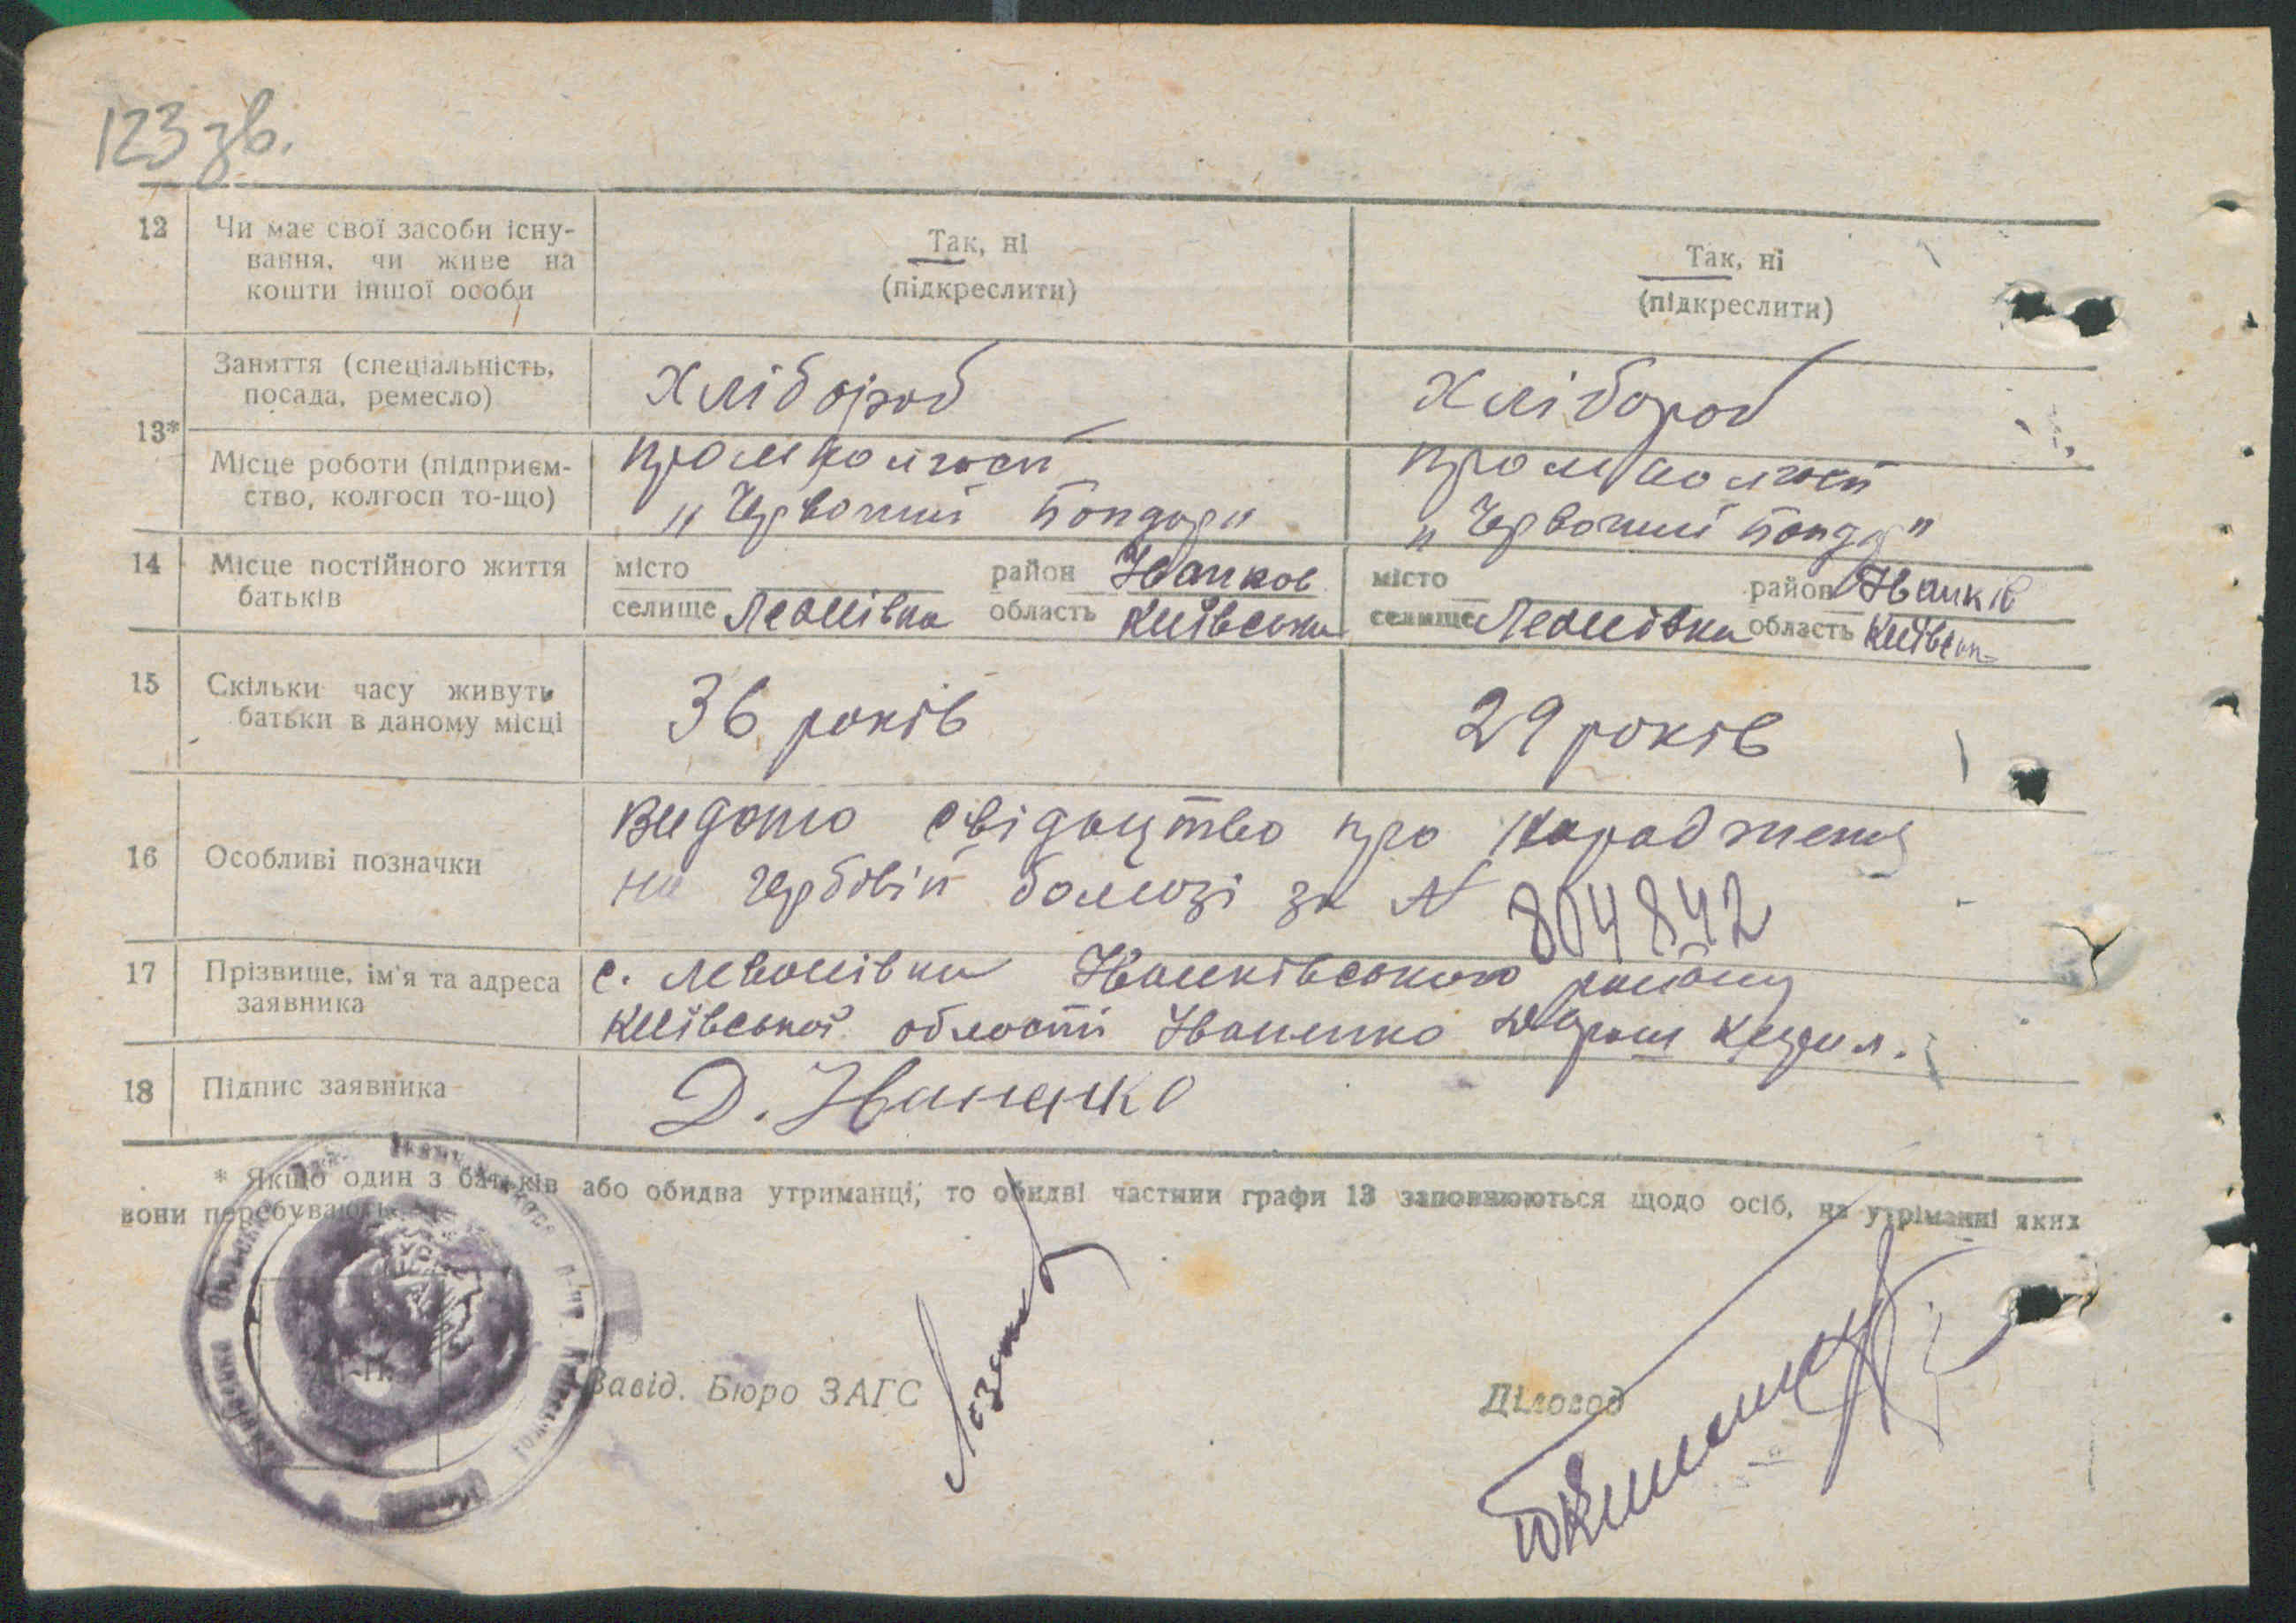 123 зв.
12 Чи має свої засоби існу-
вання, чи живе на
кошти іншої особи
Так, ні
(підкреслити)
Так, ні
(підкреслити)
13*
Заняття (спеціальність,
посада, ремесло)
Хлібороб
Хлібороб
Місце роботи (підприєм-
ство, колгосп то-що)
промколгосп
„Червоний Бондарь"
промколгосп
„Червоний Бонда"
14 Місце постійного життя
батьків
місто район Іванков
селище Леонівка область Київська
місто район Іванків
селище Леонівка область Київськ
15 Скільки часу живуть
батьки в даному місці
36 років
29 років
16 Особливі позначки
Видано свідоцтво про народження
на гербовій бомазі за № 804842
17 Прізвище, ім'я та адреса
заявника
с. Леонівка Іванківського району
Київської області Іваненко
18 Підпис заявника
Д. Іваненко
* Якщо один з батьків або обидва утриманці, то обидві частини графи 13 заповнюються щодо осіб, на утріманні яких
вони перебувають.
Завід. Бюро ЗАГС
Діловод